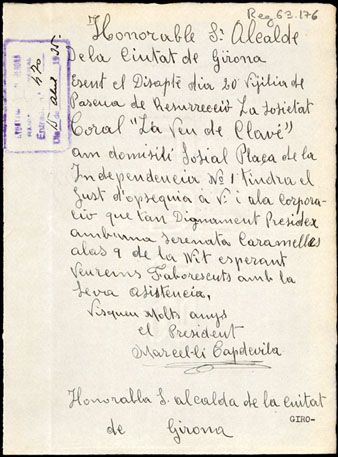 Reg. 63.176
Honorable Sr Alcalde
de la Ciutat de Girona
Esent el Disapte dia 20 Vijilia de
Pascua de Resurrecció La Societat
Coral "La Veu de Clavé"
am domisili Sosial Plaça de la
Independencia Nº 1 tindra el
Gust d'opsequia à V. i a la Corpora-
ció que tan Dignament Presideix
ambuma Serenata Caramelles
a las 9 de la Nit esperant
Veurems Faborescuts amb la
Seva Asistencia,
Visqueu Molts anys
el President
Marcel·li Capdevila
Honorabla S. alcalda de la ciutat
GIRO-
de Girona
470
15 Abril 1935